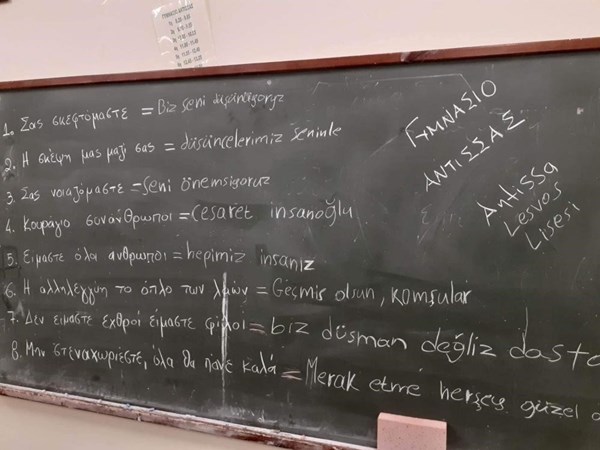 1. Σας σκεφτόμαστε = Biz seni düşünüyoruz
2. Η σκέψη μας μαζί σας = düşüncelerimiz seninle
3. Σας νοιαζόμαστε - seni önemsiyoruz
4. Κουράγιο συνάνθρωποι = cesaret insanoğlu
5. Είμαστε όλοι άνθρωποι = hepimiz insanız
6. Η αλληλεγγύη το όπλο των λαών = Geçmiş olsun, komşular
7. Δεν είμαστε εχθροί είμαστε φίλοι = biz düşman değiliz dosta
8. Μην στεναχωριέστε, όλα θα πάνε καλά = Merak etme herşey güzel
ΓΥΜΝΑΣΙΟ
ΑΝΤΙΣΣΑΣ
Antissa
Lesvos
Lisesi